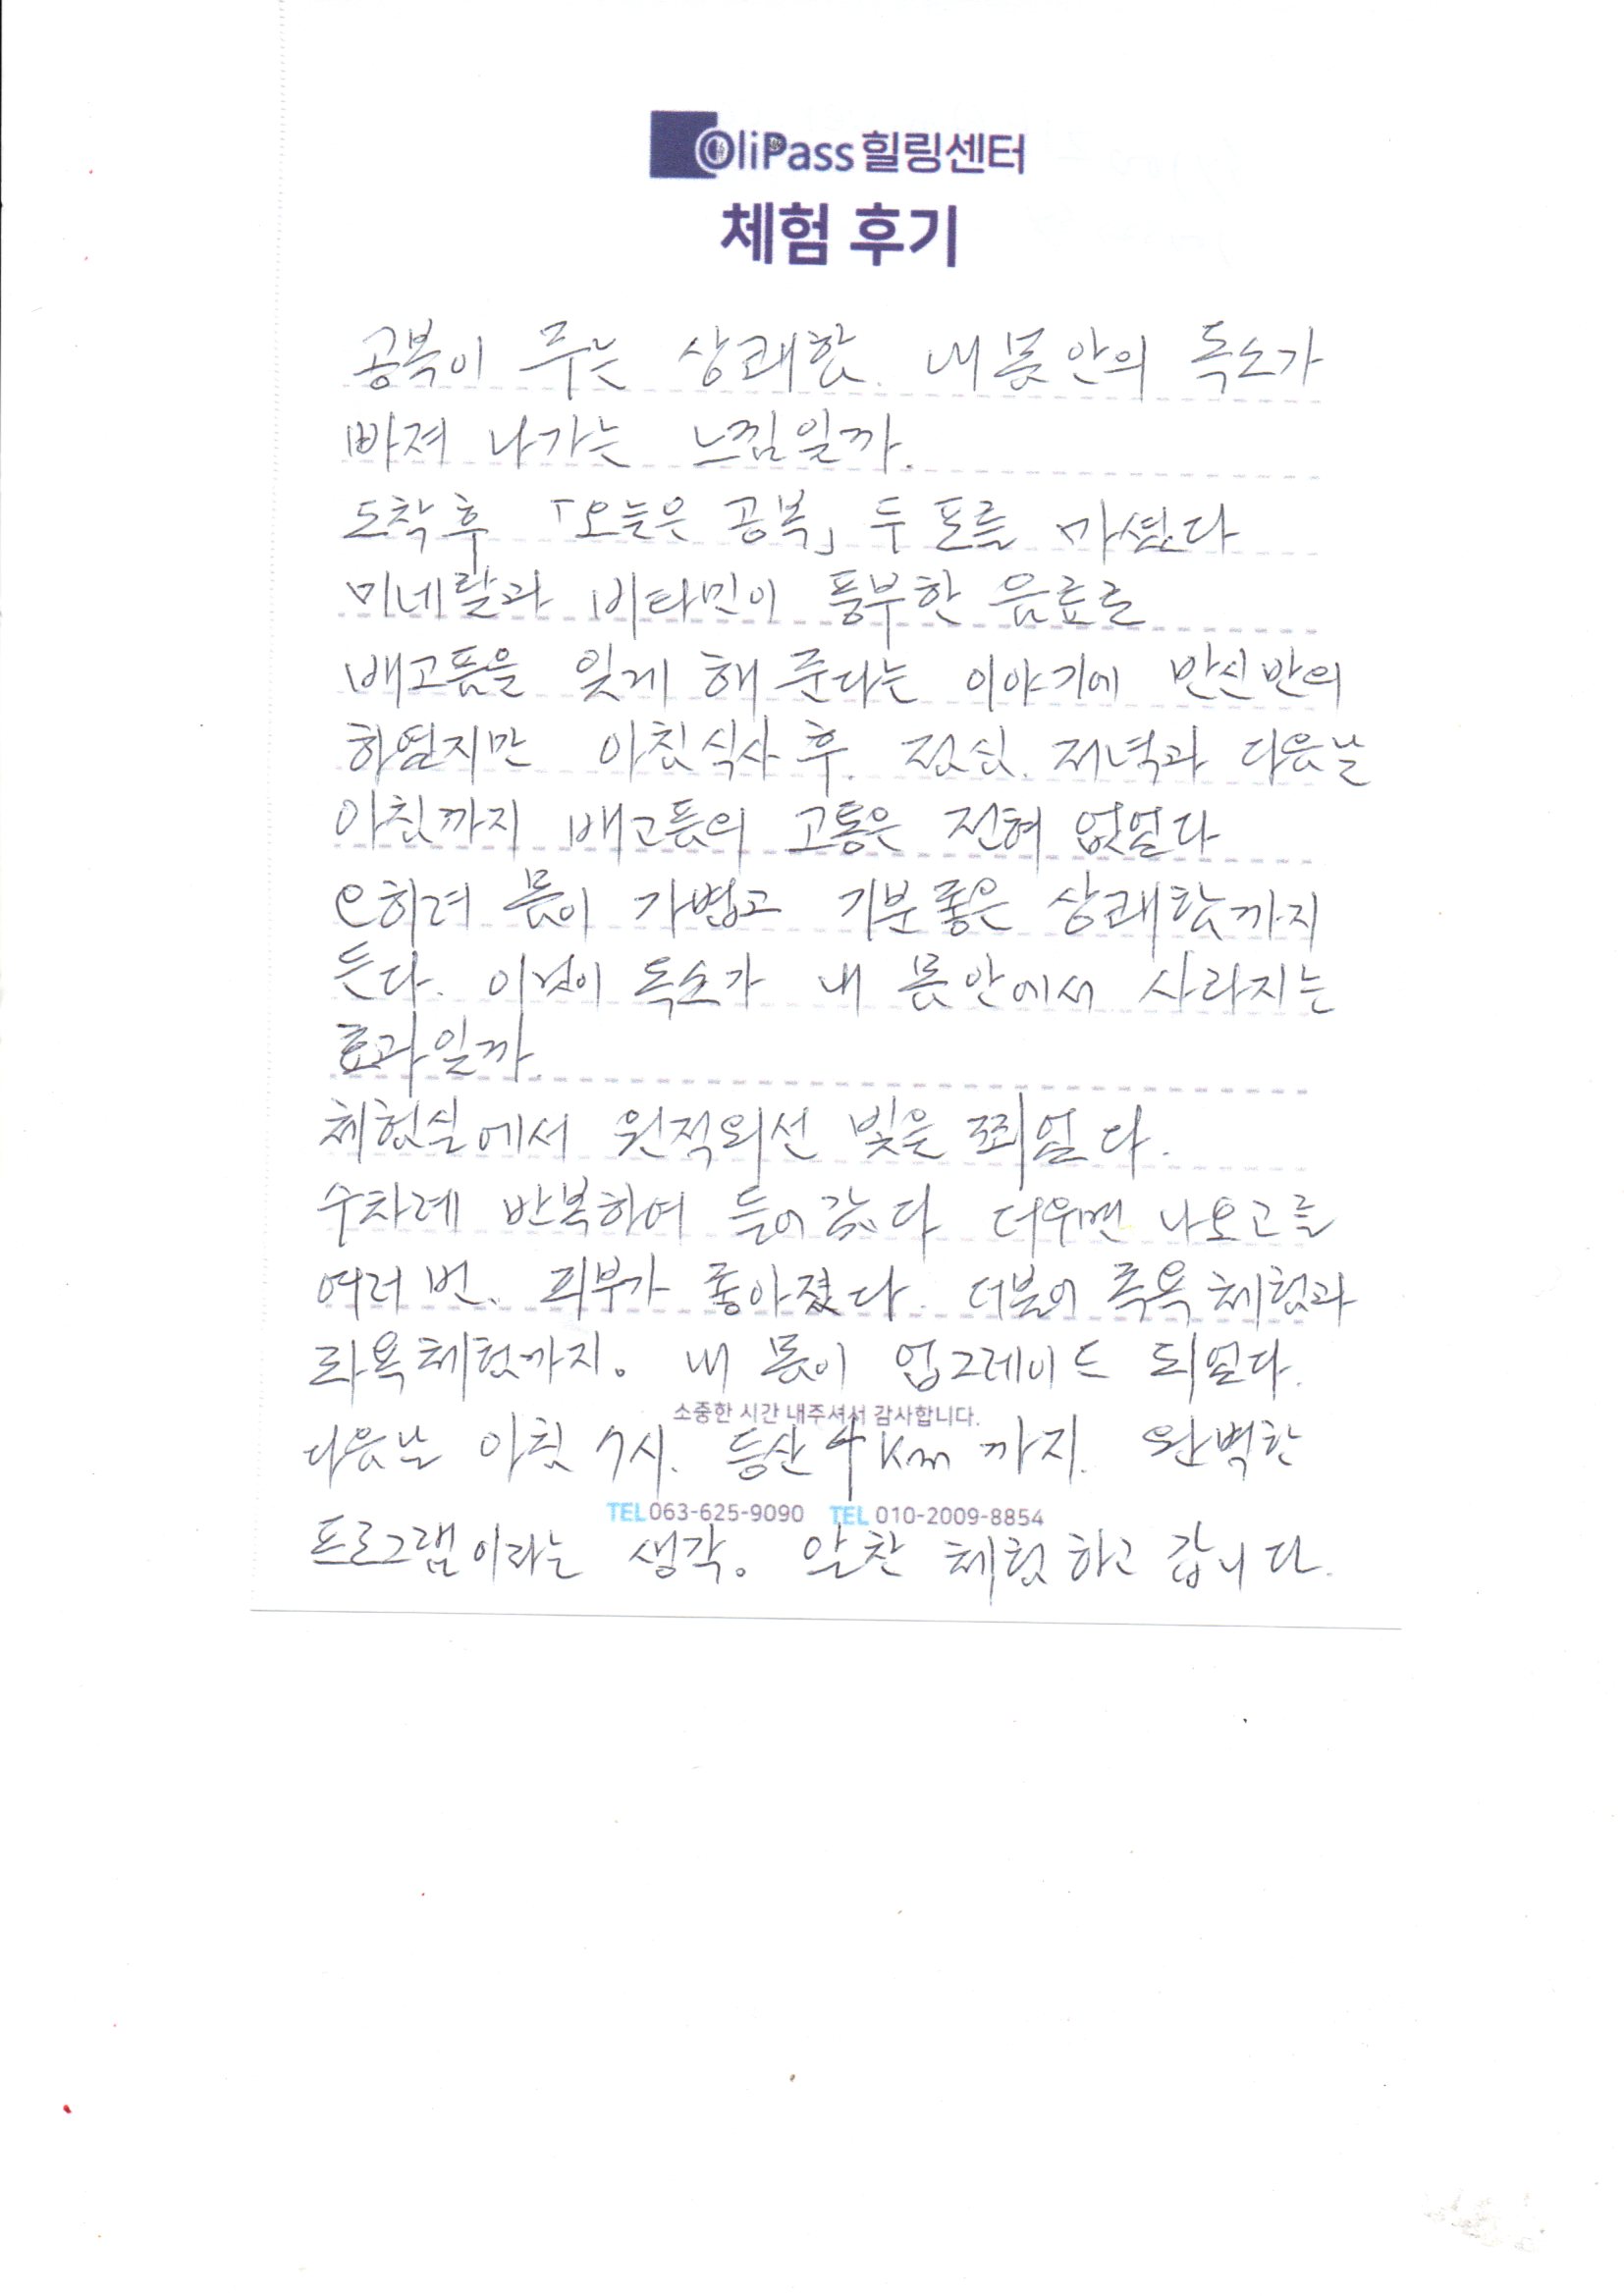 OliPass 힐링센터
체험 후기
공복이 주는 상쾌함. 내 몸 안의 독소가
빠져 나가는 느낌일까.
도착 후 「오늘은 공복」 두 포를 마셨다
미네랄과 비타민이 풍부한 음료로
배고픔을 잊게 해 준다는 이야기에 반신반의
하였지만 아침식사 후. 점심. 저녁과 다음날
아침까지 배고픔의 고통은 전혀 없었다
오히려 몸이 가볍고 기분좋은 상쾌함까지
든다. 이것이 독소가 내 몸안에서 사라지는
효과일까.
체험실에서 원적외선 빛을 쬐였다.
수차례 반복하여 들어갔다 더우면 나오고를
여러 번. 피부가 좋아졌다. 더불어 족욕체험과
좌욕체험까지. 내 몸이 업그레이드 되었다.
소중한 시간 내주셔서 감사합니다.
다음날 아침 7시. 등산 4km 까지. 완벽한
TEL 063-625-9090 TEL 010-2009-8854
프로그램이라는 생각. 알찬 체험하고 갑니다.